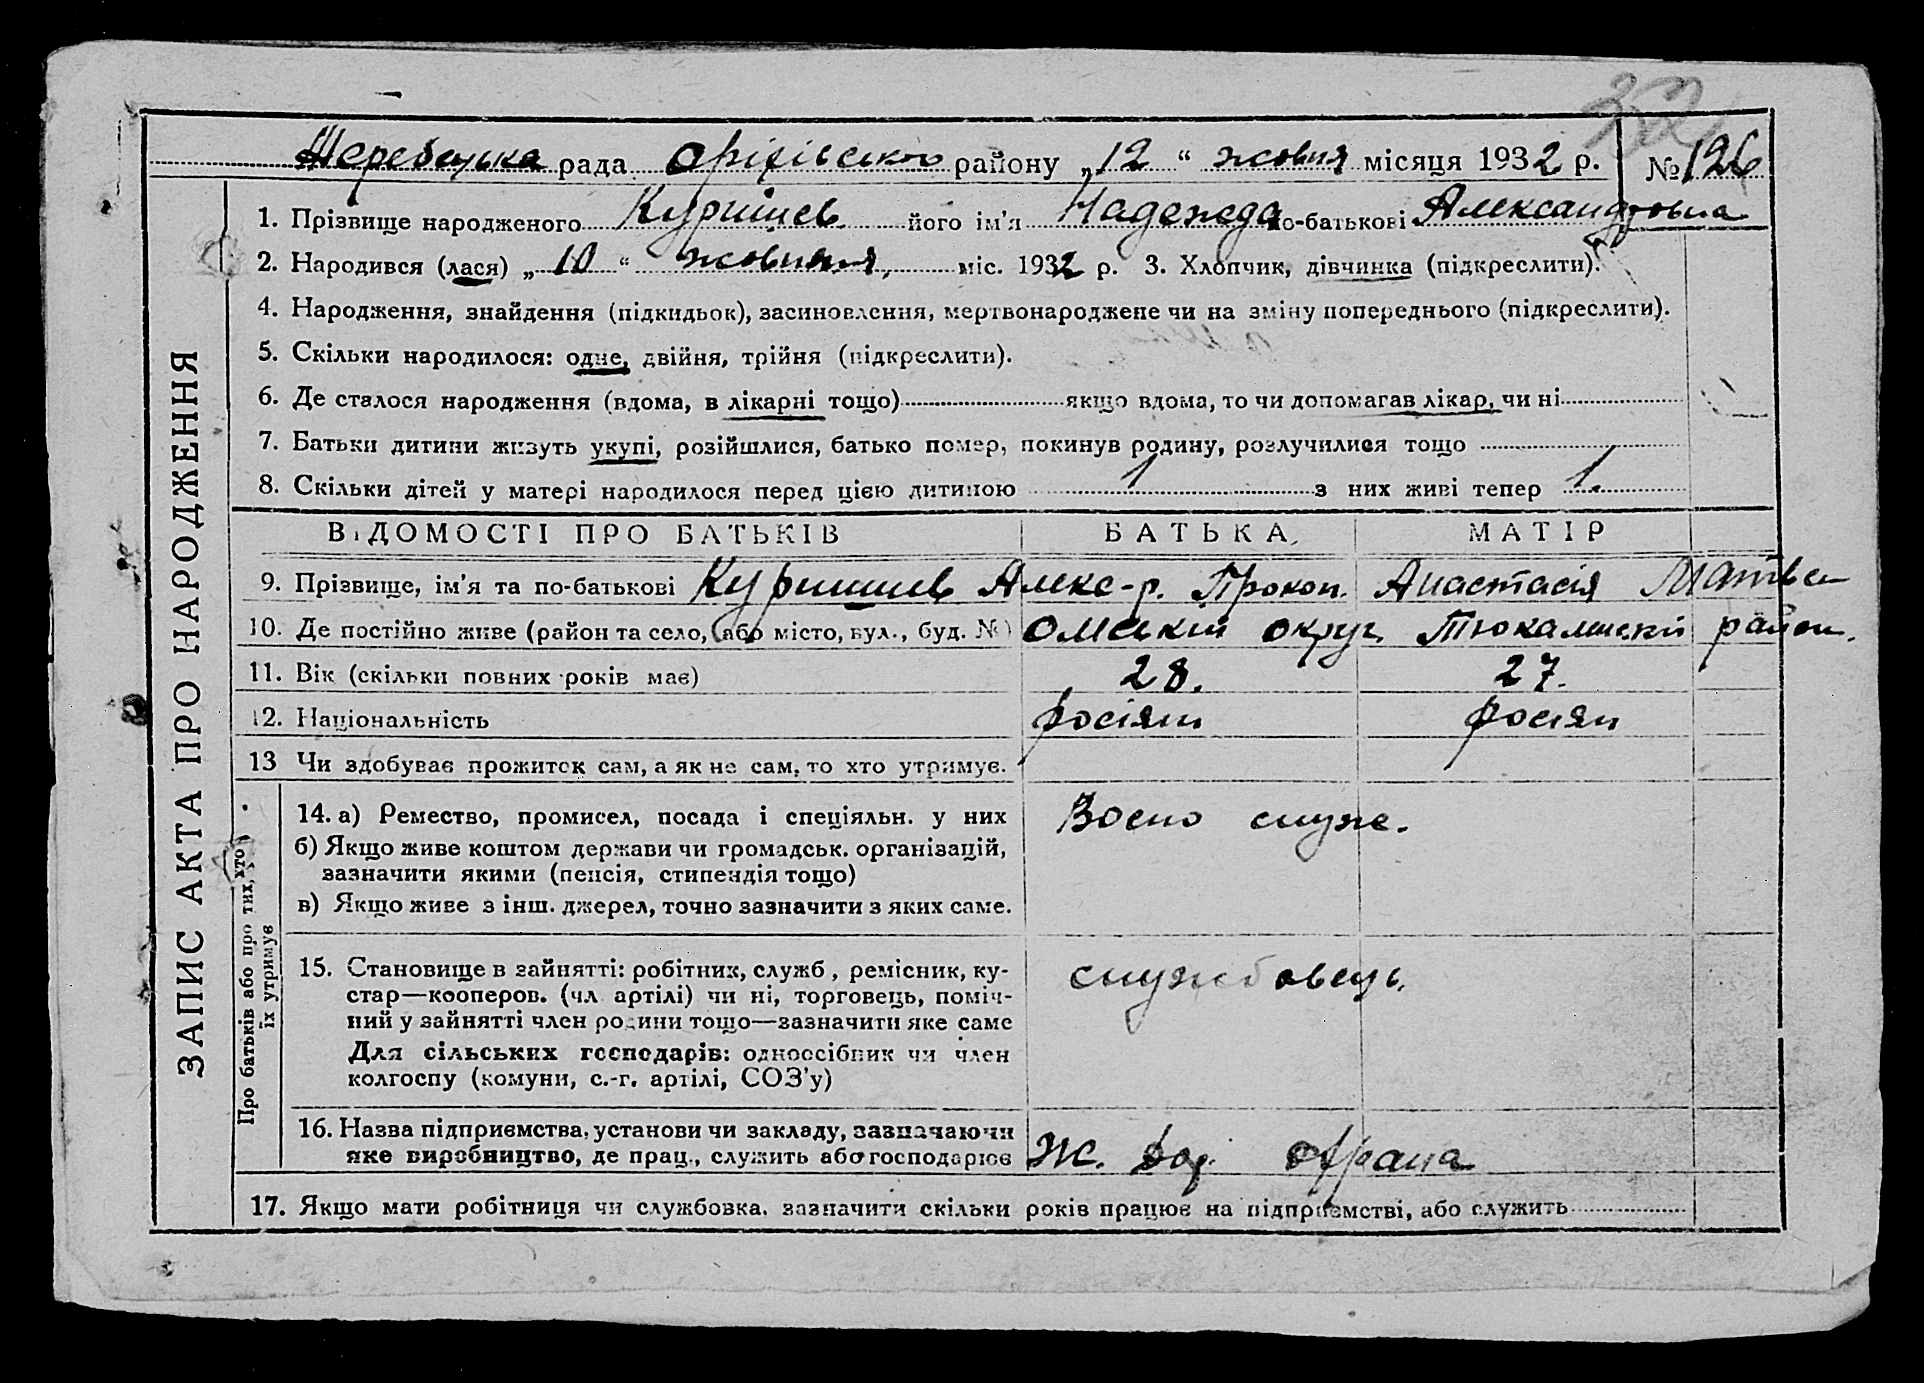 352
Жеребецька рада Оріхівського району „12“ жовтня місяця 1932 р. № 126
ЗАПИС АКТА ПРО НАРОДЖЕННЯ
1. Прізвище народженого Куришев його ім’я Надежда по-батькові Александровна
2. Народився (лася) „10“ жовтня, міс. 1932 р. 3. Хлопчик, дівчинка (підкреслити).
4. Народження, знайдення (підкидьок), засиновлення, мертвонароджене чи на зміну попереднього (підкреслити).
5. Скільки народилося: одне, двійня, трійня (підкреслити).
6. Де сталося народження (вдома, в лікарні тощо) якщо вдома, то чи допомагав лікар, чи ні
7. Батьки дитини живуть укупі, розійшлися, батько помер, покинув родину, розлучилися тощо
8. Скільки дітей у матері народилося перед цією дитиною 1 з них живі тепер 1.
ВІДОМОСТІ ПРО БАТЬКІВ БАТЬКА МАТІР
9. Прізвище, ім’я та по-батькові Куришшев Алекс-р. Прокоп. Анастасія Матве
10. Де постійно живе (район та село, або місто, вул., буд. №) Омський округ Тюкалинский район.
11. Вік (скільки повних років має) 28. 27.
12. Національність росіян росіян
13 Чи здобуває прожиток сам, а як не сам, то хто утримує.
Про батьків або про тих, хто
їх утримує
14. а) Ремество, промисел, посада і спеціяльн. у них Воено служ.
б) Якщо живе коштом держави чи громадськ. організацій,
зазначити якими (пенсія, стипендія тощо)
в) Якщо живе з інш. джерел, точно зазначити з яких саме.
15. Становище в зайнятті: робітник, служб, ремісник, ку-
стар—кооперов. (чл артілі) чи ні, торговець, поміч-
ний у зайнятті член родини тощо—зазначити яке саме службовець.
Для сільських господарів: одноосібник чи член
колгоспу (комуни, с.-г. артілі, СОЗ’у)
16. Назва підприємства, установи чи закладу, зазначаючи
яке виробництво, де прац., служить або господарює Ж. дор. охрана
17. Якщо мати робітниця чи службовка, зазначити скільки років працює на підприємстві, або служить